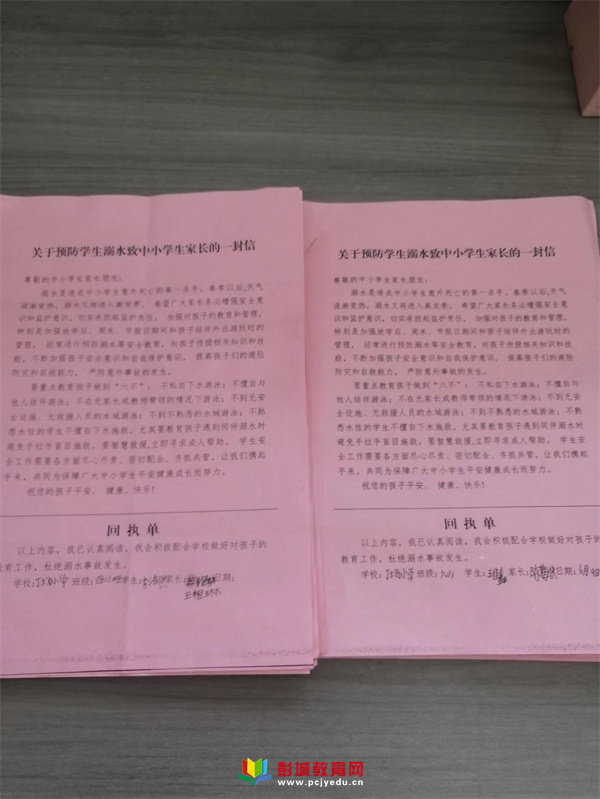 关于预防学生溺水致中小学生家长的一封信
尊敬的中小学生家长朋友：
溺水是造成中小学生意外死亡的第一杀手。春季以后，天气
逐渐变热，溺水又将进入高发季。希望广大家长务必增强安全意
识和监护意识，切实承担起监护责任，加强对孩子的教育和管理，
特别是加强放学后、周末、节假日期间和孩子结伴外出游玩时的
管理，经常进行预防溺水等安全教育，向孩子传授相关知识和技
能，不断加强孩子安全意识和自我保护意识，提高孩子们的避险
防灾和自救能力，严防意外事故的发生。
要重点教育孩子做到“六不”：不私自下水游泳；不擅自与
他人结伴游泳；不在无家长或教师带领的情况下游泳；不到无安
全设施、无救援人员的水域游泳；不到不熟悉的水域游泳；不熟
悉水性的学生不擅自下水施救。尤其要教育孩子遇到同伴溺水时
避免手拉手盲目施救，要智慧救援，立即寻求成人帮助。学生安
全工作需要各方面尽心尽责、密切配合、齐抓共管，让我们携起
手来，共同为保障广大中小学生平安健康成长而努力。
祝您的孩子平安、健康、快乐！
回执单
以上内容，我已认真阅读。我会积极配合学校做好对孩子的
教育工作，杜绝溺水事故发生。
学校： 小学 班级： 学生： 家长： 日期：
关于预防学生溺水致中小学生家长的一封信
尊敬的中小学生家长朋友：
溺水是造成中小学生意外死亡的第一杀手。春季以后，天气
逐渐变热，溺水又将进入高发季。希望广大家长务必增强安全意
识和监护意识，切实承担起监护责任，加强对孩子的教育和管理，
特别是加强放学后、周末、节假日期间和孩子结伴外出游玩时的
管理，经常进行预防溺水等安全教育，向孩子传授相关知识和技
能，不断加强孩子安全意识和自我保护意识，提高孩子们的避险
防灾和自救能力，严防意外事故的发生。
要重点教育孩子做到“六不”：不私自下水游泳；不擅自与
他人结伴游泳；不在无家长或教师带领的情况下游泳；不到无安
全设施、无救援人员的水域游泳；不到不熟悉的水域游泳；不熟
悉水性的学生不擅自下水施救。尤其要教育孩子遇到同伴溺水时
避免手拉手盲目施救，要智慧救援，立即寻求成人帮助。学生安
全工作需要各方面尽心尽责、密切配合、齐抓共管，让我们携起
手来，共同为保障广大中小学生平安健康成长而努力。
祝您的孩子平安、健康、快乐！
回执单
以上内容，我已认真阅读。我会积极配合学校做好对孩子的
教育工作，杜绝溺水事故发生。
学校： 小学 班级： 学生： 家长： 日期：6月9日
彭城教育网
www.pcjyedu.cn